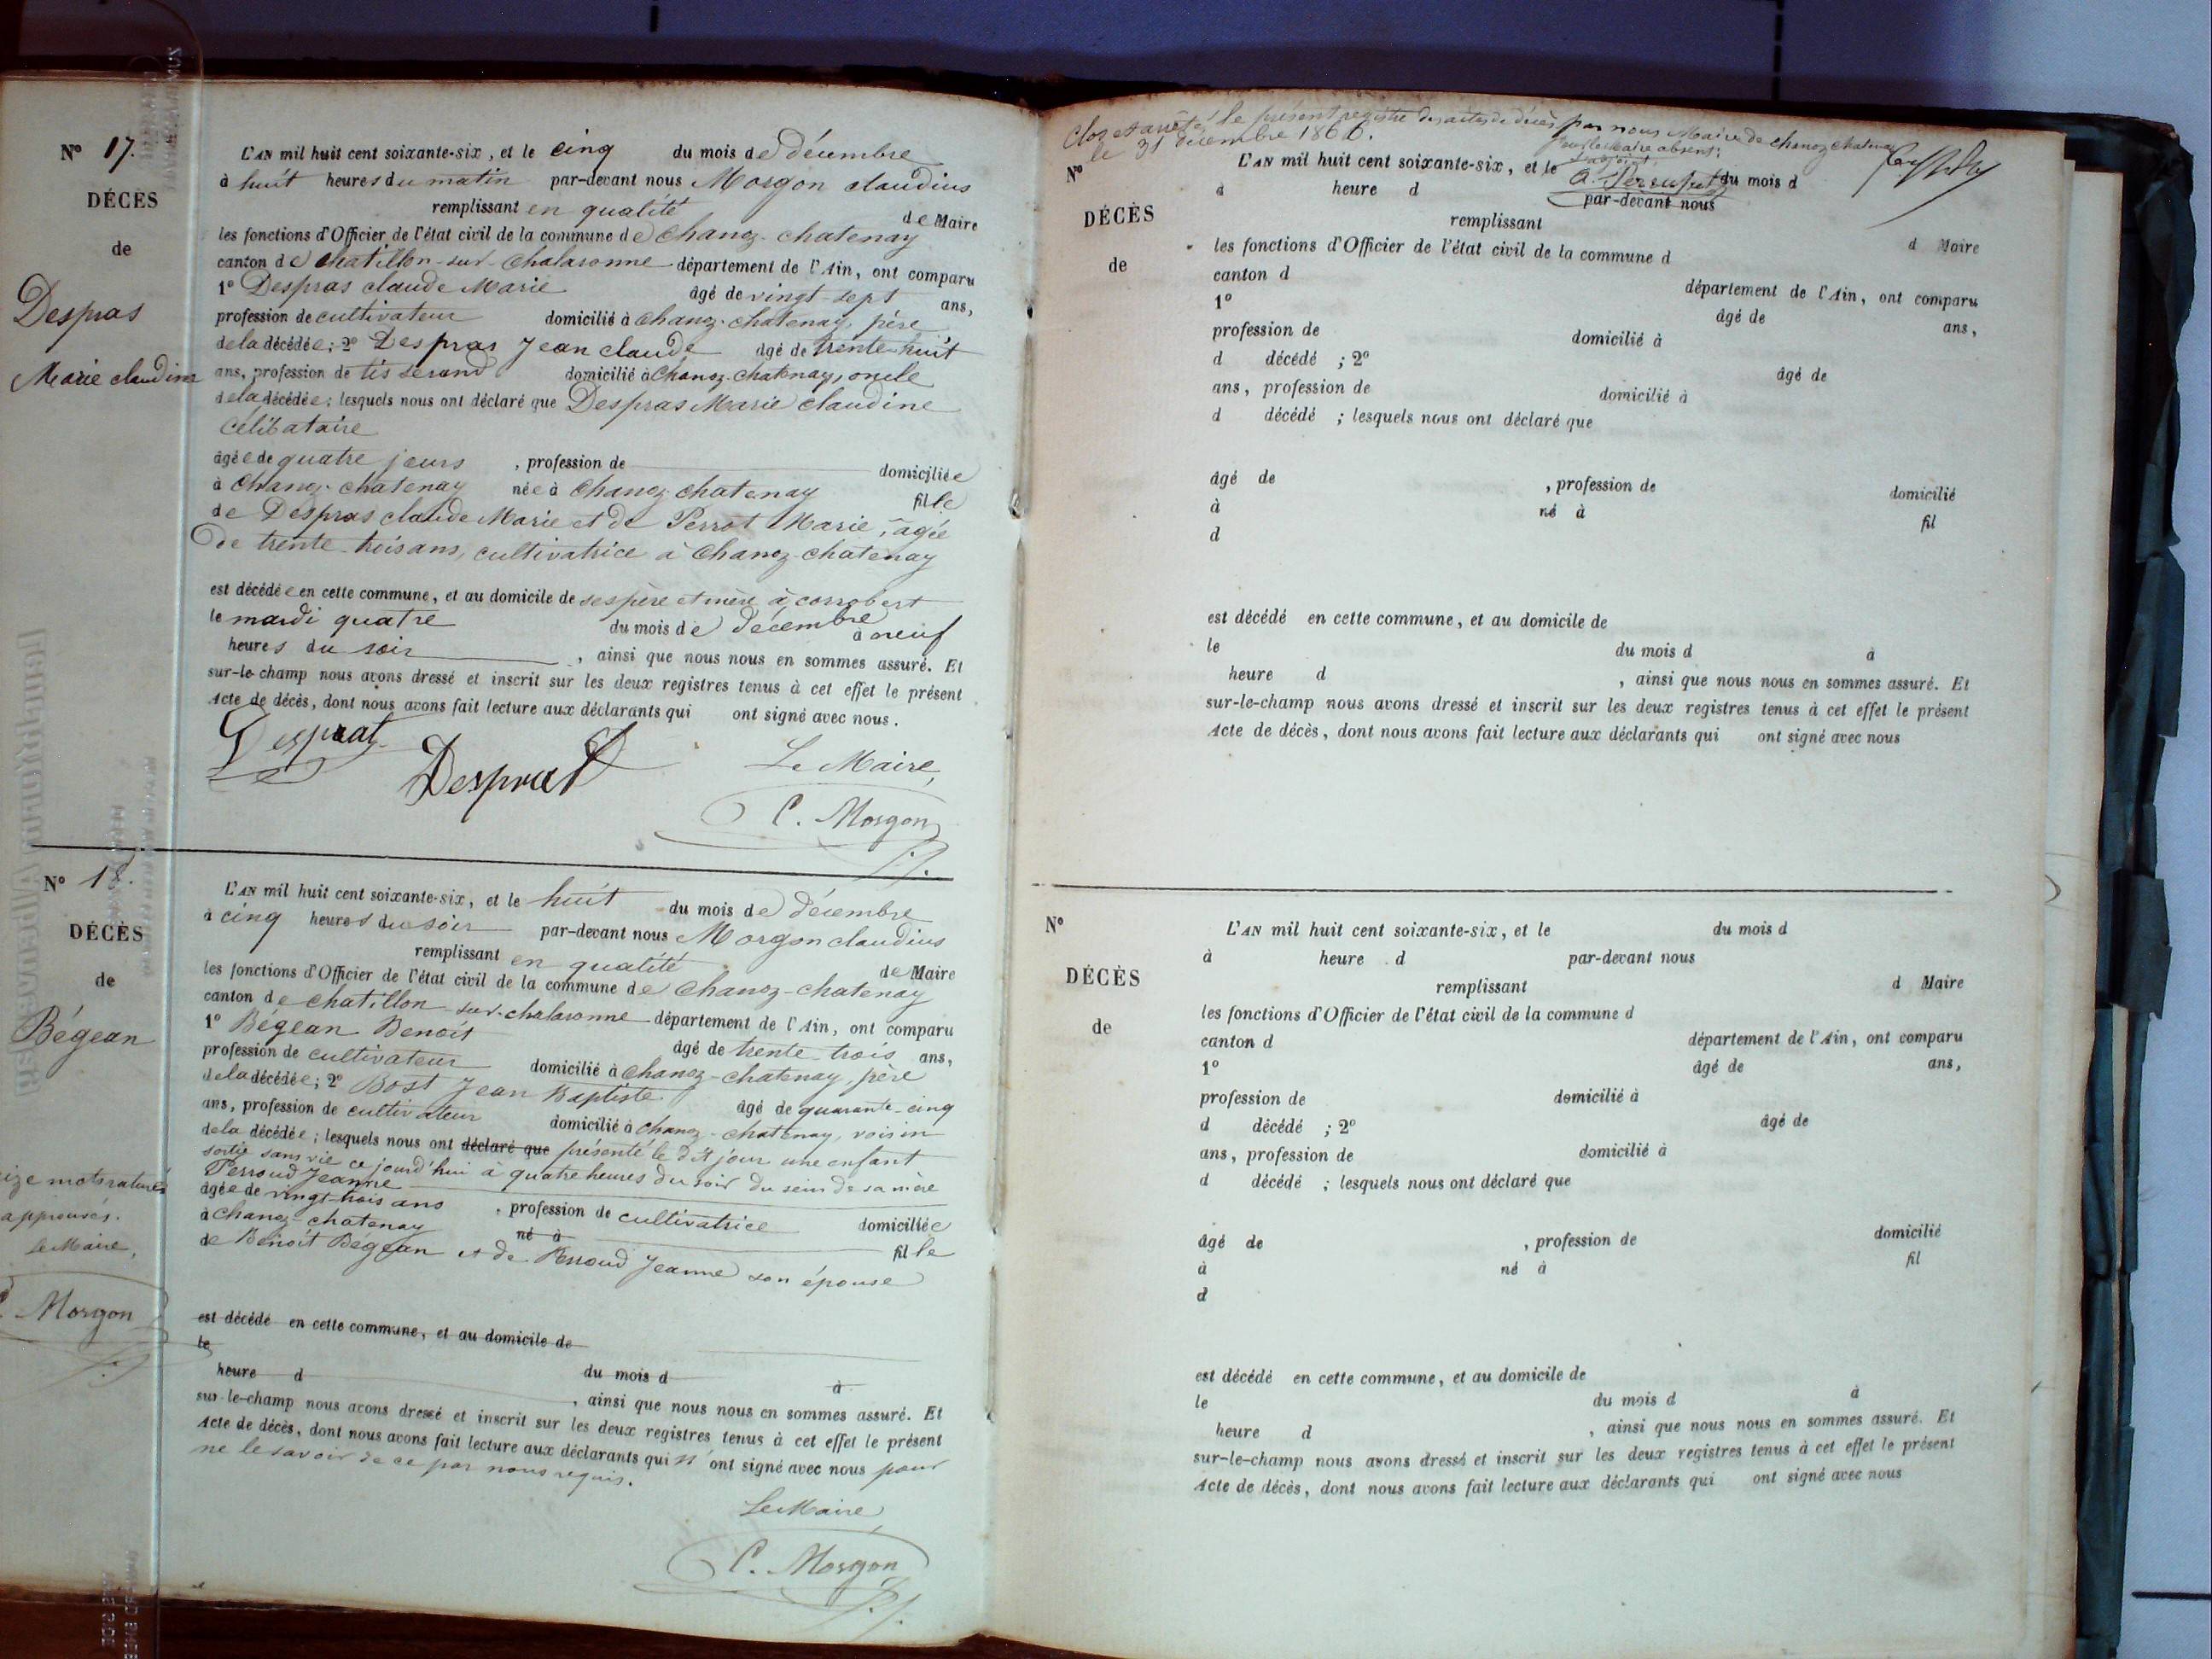 Nº 17.
DÉCÈS
de
Despras
Marie claudine
L'AN mil huit cent soixante-six, et le cinq du mois de décembre
à huit heures du matin par-devant nous Morgon claudius
remplissant en qualité de Maire
les fonctions d'Officier de l'état civil de la commune de Chanoz-chatenay
canton de chatillon-sur-chalaronne département de l'Ain, ont comparu
1º Despras claude Marie âgé de vingt-sept ans,
profession de cultivateur domicilié à Chanoz-chatenay, père
de la décédée; 2º Despras Jean claude âgé de trente-huit
ans, profession de tisserand domicilié à Chanoz-chatenay, oncle
de la décédée; lesquels nous ont déclaré que Despras Marie claudine
Célibataire
âgée de quatre jours, profession de domiciliée
à Chanoz-chatenay née à Chanoz-chatenay fille
de Despras claude Marie et de Perrot Marie, âgée
de trente-trois ans, cultivatrice à Chanoz-chatenay
est décédée en cette commune, et au domicile de ses père et mère à corrobert
le mardi quatre du mois de décembre à neuf
heures du soir, ainsi que nous nous en sommes assuré. Et
sur-le-champ nous avons dressé et inscrit sur les deux registres tenus à cet effet le présent
Acte de décès, dont nous avons fait lecture aux déclarants qui ont signé avec nous.
Desprat
Desprat
Le Maire,
C. Morgon
Nº 18.
DÉCÈS
de
Bégean
L'AN mil huit cent soixante-six, et le huit du mois de décembre
à cinq heures du soir par-devant nous Morgon claudius
remplissant en qualité de Maire
les fonctions d'Officier de l'état civil de la commune de Chanoz-chatenay
canton de chatillon-sur-chalaronne département de l'Ain, ont comparu
1º Bégean Benoit âgé de trente-trois ans,
profession de cultivateur domicilié à Chanoz-chatenay, père
de la décédée; 2º Bost Jean Baptiste âgé de quarante-cinq
ans, profession de cultivateur domicilié à Chanoz-chatenay, voisin
de la décédée; lesquels nous ont déclaré que présenté le dit jour une enfant
sortie sans vie ce jourd'hui à quatre heures du soir du sein de sa mère
Perroud Jeanne
âgée de vingt-trois ans, profession de cultivatrice domiciliée
à Chanoz-chatenay né à fille
de Benoit Bégean et de Perroud Jeanne son épouse
ize mots raturés
approuvés.
Le Maire,
C. Morgon
est décédé en cette commune, et au domicile de
le
heure d du mois d à
, ainsi que nous nous en sommes assuré. Et
sur le-champ nous avons dressé et inscrit sur les deux registres tenus à cet effet le présent
Acte de décès, dont nous avons fait lecture aux déclarants qui n'ont signé avec nous pour
ne le savoir de ce par nous requis.
Le Maire,
C. Morgon
Clos et arrêté le présent registre des actes de décès par nous Maire de chanoz chatenay
le 31 décembre 1866.
Pour le Maire absent:
l'adjoint
Nº
DÉCÈS
de
L'AN mil huit cent soixante-six, et le du mois d
à heure d par-devant nous
remplissant d Maire
les fonctions d'Officier de l'état civil de la commune d
canton d département de l'Ain, ont comparu
1º âgé de ans,
profession de domicilié à
d décédé ; 2º âgé de
ans, profession de domicilié à
d décédé ; lesquels nous ont déclaré que
âgé de , profession de domicilié
à né à fil
d
est décédé en cette commune, et au domicile de
le du mois d à
heure d , ainsi que nous nous en sommes assuré. Et
sur-le-champ nous avons dressé et inscrit sur les deux registres tenus à cet effet le présent
Acte de décès, dont nous avons fait lecture aux déclarants qui ont signé avec nous
Nº
DÉCÈS
de
L'AN mil huit cent soixante-six, et le du mois d
à heure d par-devant nous
remplissant d Maire
les fonctions d'Officier de l'état civil de la commune d
canton d département de l'Ain, ont comparu
1º âgé de ans,
profession de domicilié à
d décédé ; 2º âgé de
ans, profession de domicilié à
d décédé ; lesquels nous ont déclaré que
âgé de , profession de domicilié
à né à fil
d
est décédé en cette commune, et au domicile de
le du mois d à
heure d , ainsi que nous nous en sommes assuré. Et
sur-le-champ nous avons dressé et inscrit sur les deux registres tenus à cet effet le présent
Acte de décès, dont nous avons fait lecture aux déclarants qui ont signé avec nous